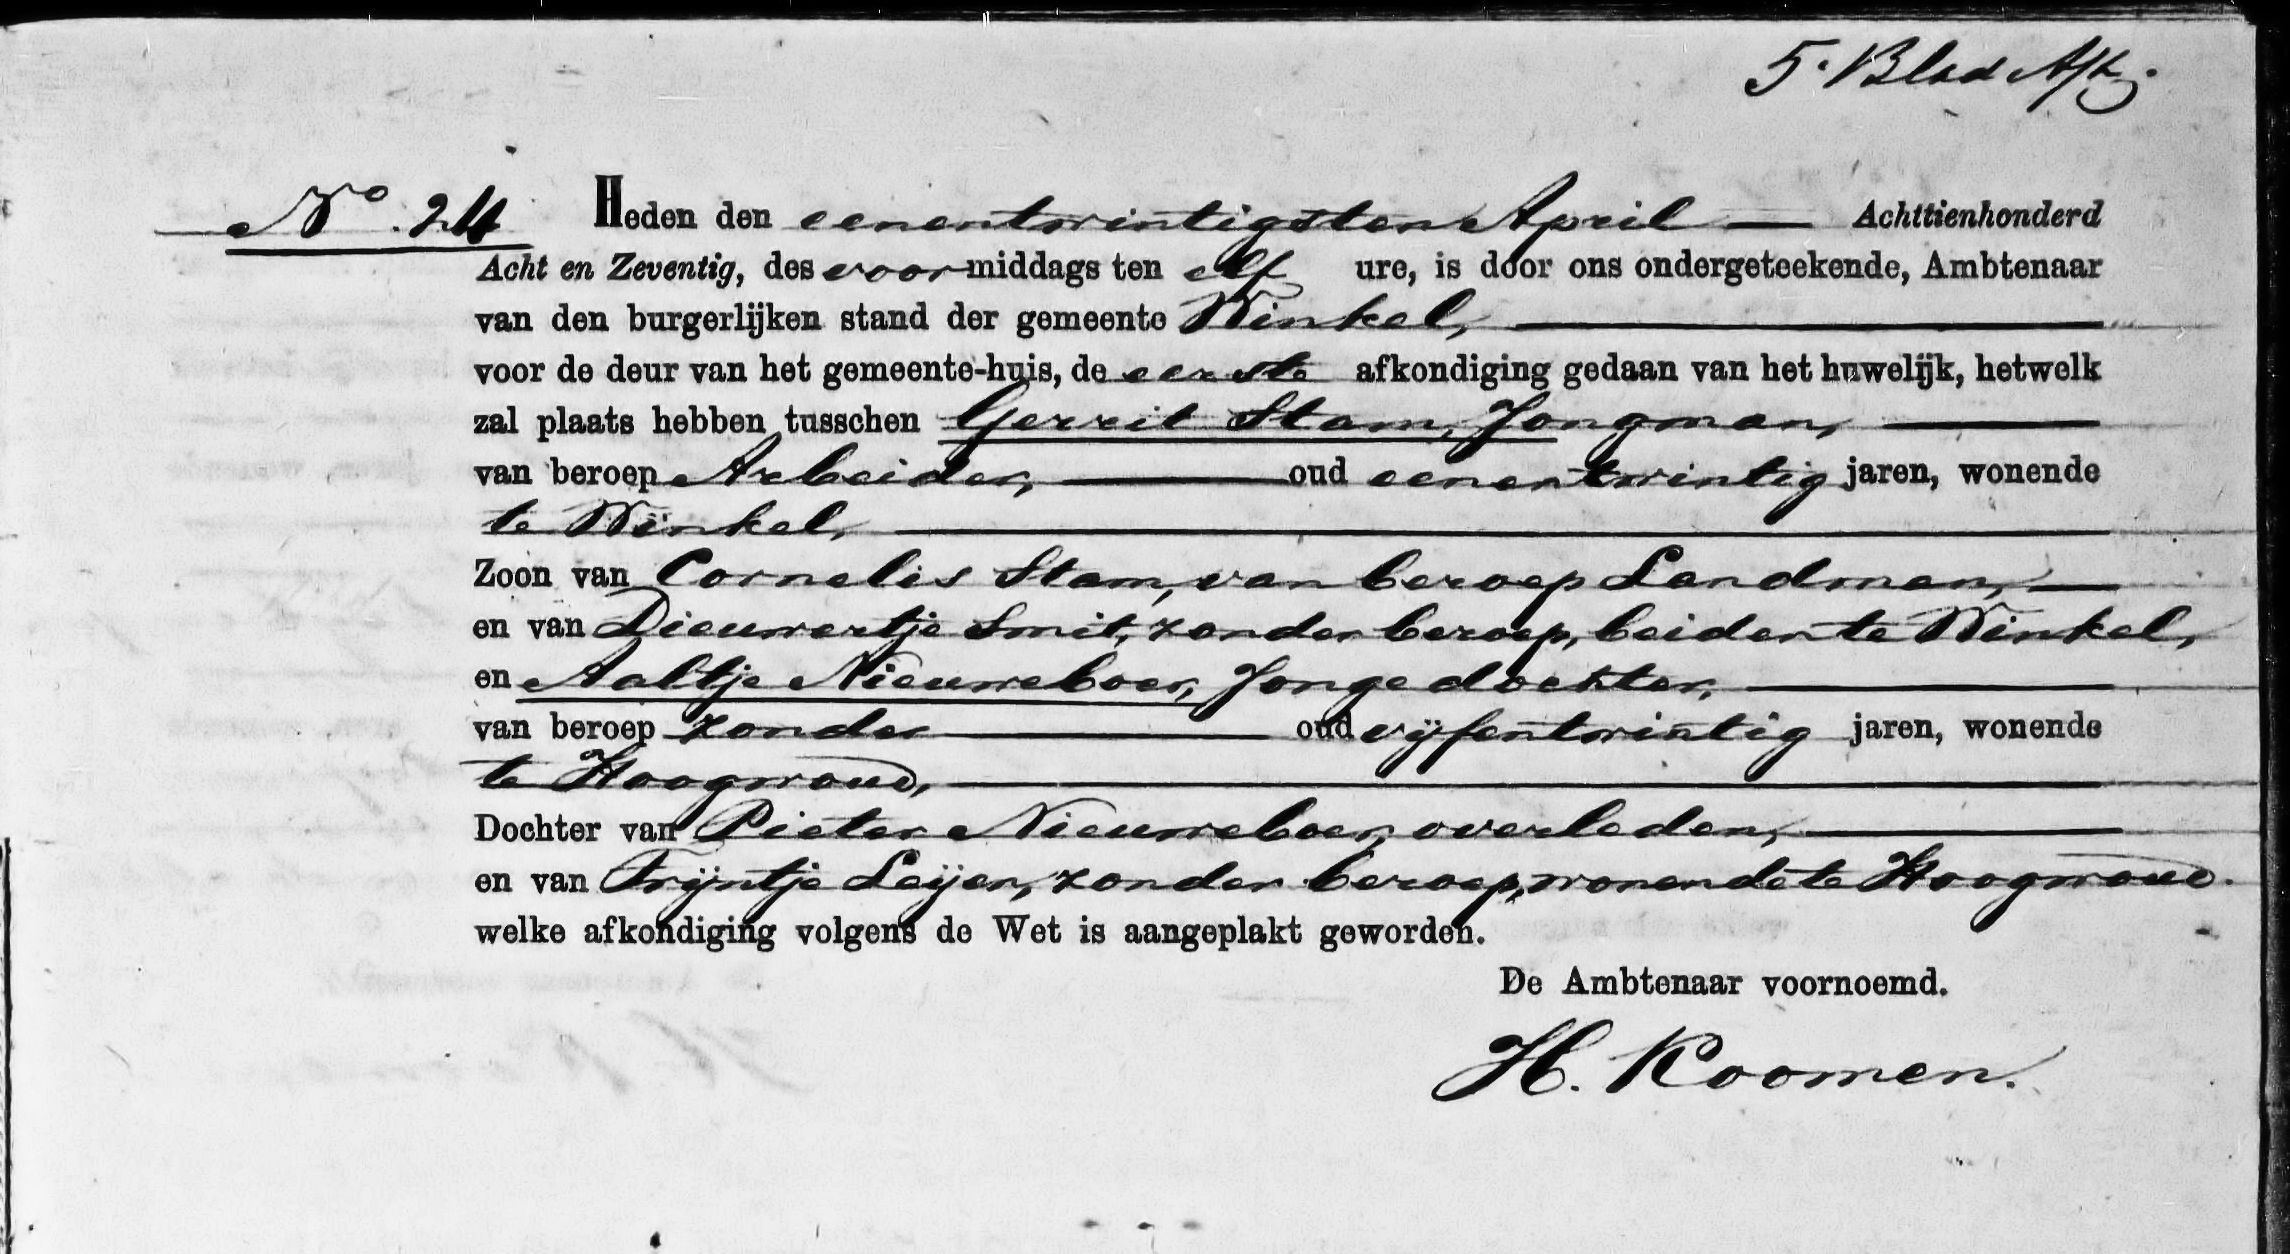 5e Blad Afk.
No. 24 Heden den eenentwintigsten April Achttienhonderd
Acht en Zeventig, des voormiddags ten elf ure, is door ons ondergeteekende, Ambtenaar
van den burgerlijken stand der gemeente Winkel,
voor de deur van het gemeente-huis, de eerste afkondiging gedaan van het huwelijk, hetwelk
zal plaats hebben tusschen Gerrit Stam, Jongman,
van beroep Arbeider, oud eenentwintig jaren, wonende
te Winkel,
Zoon van Cornelis Stam, van beroep Landman,
en van Dieuwertje Smit, zonder beroep, beiden te Winkel,
en Aaltje Nieuweboer, Jongedochter,
van beroep zonder oud vijfentwintig jaren, wonende
te Hoogwoud,
Dochter van Pieter Nieuweboer, overleden,
en van Trijntje Leijen, zonder beroep, wonende te Hoogwoud.
welke afkondiging volgens de Wet is aangeplakt geworden.
De Ambtenaar voornoemd.
H. Koomen.